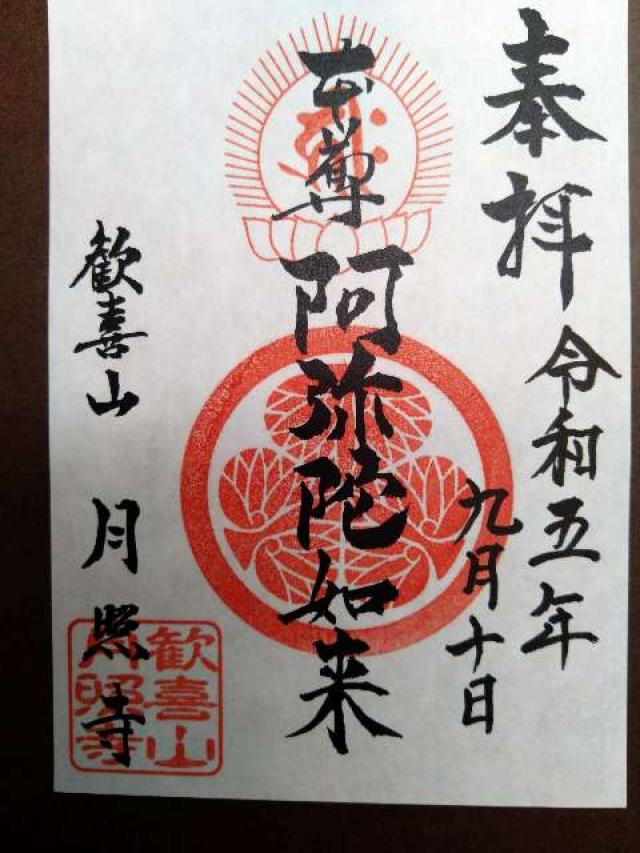 奉拝
令和五年
九月十日
本尊
阿弥陀如来
歓喜山
月照寺
歓喜山
月照寺